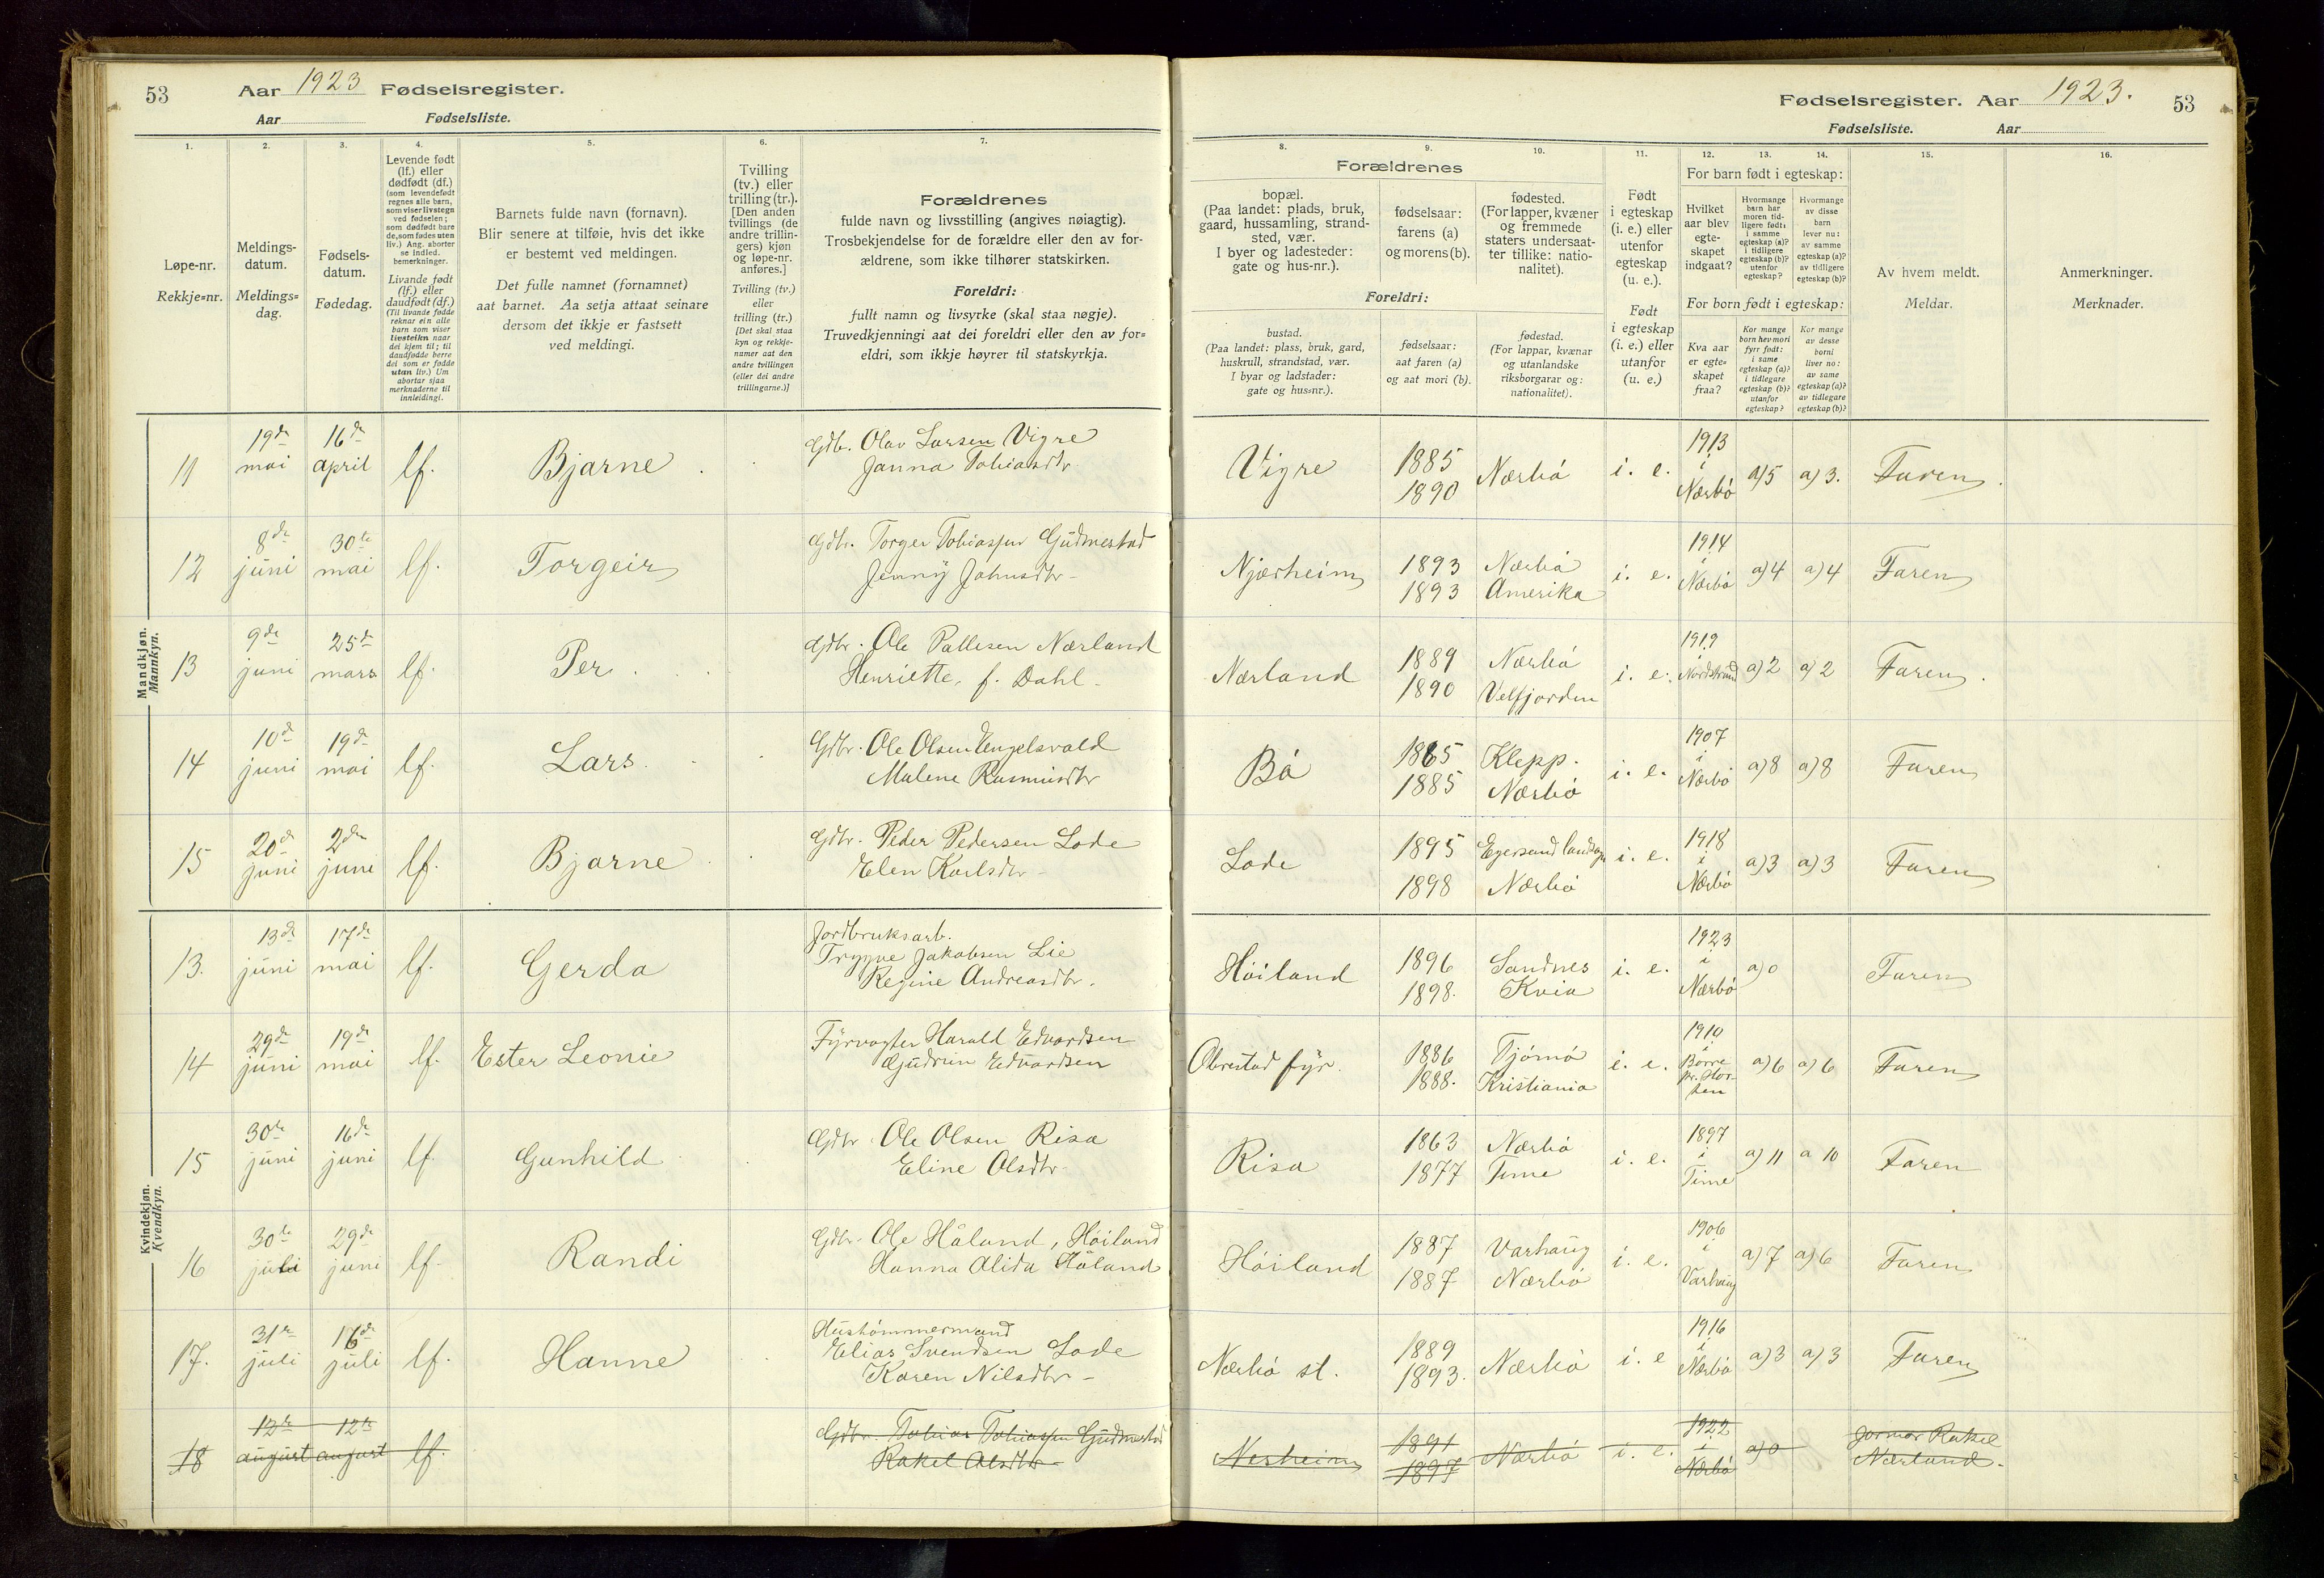 53 Aar 1923 Fødselsregister.
Aar Fødselsliste.
Fødselsregister. Aar 1923. 53
Fødselsliste. Aar
1.
Løpe-nr.
Rekkje=nr.
2.
Meldings-
datum.
Meldings=
dag.
3.
Fødsels-
datum.
Fødedag.
4.
Levende født
(lf.) eller
dødfødt (df.)
(som levendefødt
regnes alle barn,
som viser livstegn
ved fødselen;
som dødfødt bare
de, som fødes uten
liv.) Ang. aborter
se indled.
bemerkninger.
Livande født
(lf.) eller
daudfødt (df.)
(Til livande fødde
reknar ein alle
barn som viser
livsteikn naar
dei kjem til; til
daudfødde berre
dei som er fødde
utan liv.) Um
abortar sjaa
merknaderne til
innleidingi.
5.
Barnets fulde navn (fornavn).
Blir senere at tilføie, hvis det ikke
er bestemt ved meldingen.
Det fulle namnet (fornamnet)
aat barnet. Aa setja attaat seinare
dersom det ikkje er fastsett
ved meldingi.
6.
Tvilling
(tv.) eller
trilling (tr.).
[Den anden
tvillings (de
andre trillin-
gers) kjøn
og løpe-nr.
anføres.]
Tvilling (tv.)
eller
trilling (tr.)
[Det skal staa
kyn og rekkje-
numer aat den
andre tvillingen
(eller dei andre
trillingarne.)]
7.
Forældrenes
fulde navn og livsstilling (angives nøiagtig).
Trosbekjendelse for de forældre eller den av for-
ældrene, som ikke tilhører statskirken.
Foreldri:
fullt namn og livsyrke (skal staa nøgje).
Truvedkjenningi aat dei foreldri eller den av for=
eldri, som ikkje høyrer til statskyrkja.
Forældrenes
8.
bopæl.
(Paa landet: plads, bruk,
gaard, hussamling, strand-
sted, vær.
I byer og ladesteder:
gate og hus-nr.).
9.
fødselsaar:
farens (a)
og morens (b).
10.
fødested.
(For lapper, kvæner
og fremmede
staters undersaat-
ter tillike: natio-
nalitet).
Foreldri:
bustad.
(Paa landet: plass, bruk, gard,
huskrull, strandstad, vær.
I byar og ladstader:
gate og hus=nr.).
fødselsaar:
aat faren (a)
og aat mori (b).
fødestad.
(For lappar, kvænar
og utanlandske
riksborgarar og:
nationalitet).
11.
Født
i egteskap
(i. e.) eller
utenfor
egteskap
(u. e.).
Født
i egteskap
(i. e.) eller
utanfor
(u. e.)
For barn født i egteskap:
12.
Hvilket
aar blev
egte-
skapet
indgaat?
13.
Hvormange
barn har
moren tid-
ligere født:
i samme
egteskap (a)?
i tidligere
egteskap (b)?
utenfor
egteskap?
14.
Hvormange
av disse
barn
lever nu:
av samme
egteskap (a)?
av tidligere
egteskap (b)?
For born født i egteskap:
Kva aar
er egte=
skapet
fraa?
Kor mange
born hev mori
fyrr født:
i same
egteskap (a)?
i tidlegare
egteskap (b)?
utanfor
egteskap?
Kor mange
av desse
borni
liver no:
av same
egteskap (a)?
av tidlegare
egteskap (b)?
15.
Av hvem meldt.
Meldar.
16.
Anmerkninger.
Merknader.
Mandkjøn.
Mannkyn.
11 19de mai 16de april lf. Bjarne. Gdbr. Olav Larsen Vigre
Janna Tobiasdtr
Vigre 1885 1890 Nærbö i. e. 1913 i Nærbö a)5 a) 3. Faren.
12 8de juni 30te mai lf. Torgeir Gdbr. Torger Tobiassen Gudmestad
Jenny Johnsdtr
Njærheim 1893 1893 Nærbö Amerika i. e. 1914 i Nærbö a)4 a)4 Faren
13 9de juni 25de mars lf. Per. Gdbr. Ole Pallesen Nærland
Henriette, f. Dahl
Nærland 1889 1890 Nærbö Velfjorden i. e. 1919 i Nordstrand a)2 a)2 Faren.
14 10de juni 19de mai lf. Lars. Gdbr. Ole Olsen Engelsvold
Malene Rasmusdtr
Bö 1865 1885 Klepp. Nærbö i. e. 1907 i Nærbö a)8 a)8 Faren
15 20de juni 2den juni lf. Bjarne Gdbr. Peder Pedersen Lode
Elen Karlsdtr
Lode 1895 1898 Egersund landsogn Nærbö i. e. 1918 i Nærbö a)3 a)3 Faren
Kvindekjøn.
Kvendkyn.
13. 13de juni 17de mai lf. Gerda Jordbruksarb.
Trygve Jakobsen Lie
Regine Andreasdtr.
Höiland 1896 1898. Sandnes Kvia i. e. 1923 i Nærbö a)0 Faren
14 29de juni 19de mai lf. Ester Leonie Fyrvogter Harald Edvardsen
Gudrun Edvardsen
Obrestad fyr. 1886 1888. Tjömö Kristiania i. e. 1910 i Borre pr. Horten a)6 a)6 Faren
15 30te juni 16de juni lf. Gunhild Gdbr. Ole Olsen Risa
Eline Olsdtr.
Risa 1863 1877 Nærbö Time i. e. 1897 i Time a)11 a 10 Faren
16 30te juli 29de juni lf. Randi Gdbr. Ole Håland, Höiland
Hanna Alida Håland
Höiland 1887 1887 Varhaug Nærbö i. e. 1906 i Varhaug a)7 a)6 Faren
17. 31te juli 16de juli lf. Hanne Hustömmermand
Elias Svendsen Lode
Karen Nilsdtr
Nærbö st. 1889 1893. Nærbö i. e 1916 i Nærbö a)3 a)3 Faren
18 12te august 12te august lf. Gdbr. Tobias Tobiassen Gudmestad
Rakel Olsdtr
Nerheim 1891 1897 Nærbö i. e. 1922 i Nærbö a)0 Jormor Rakel
Nærland.